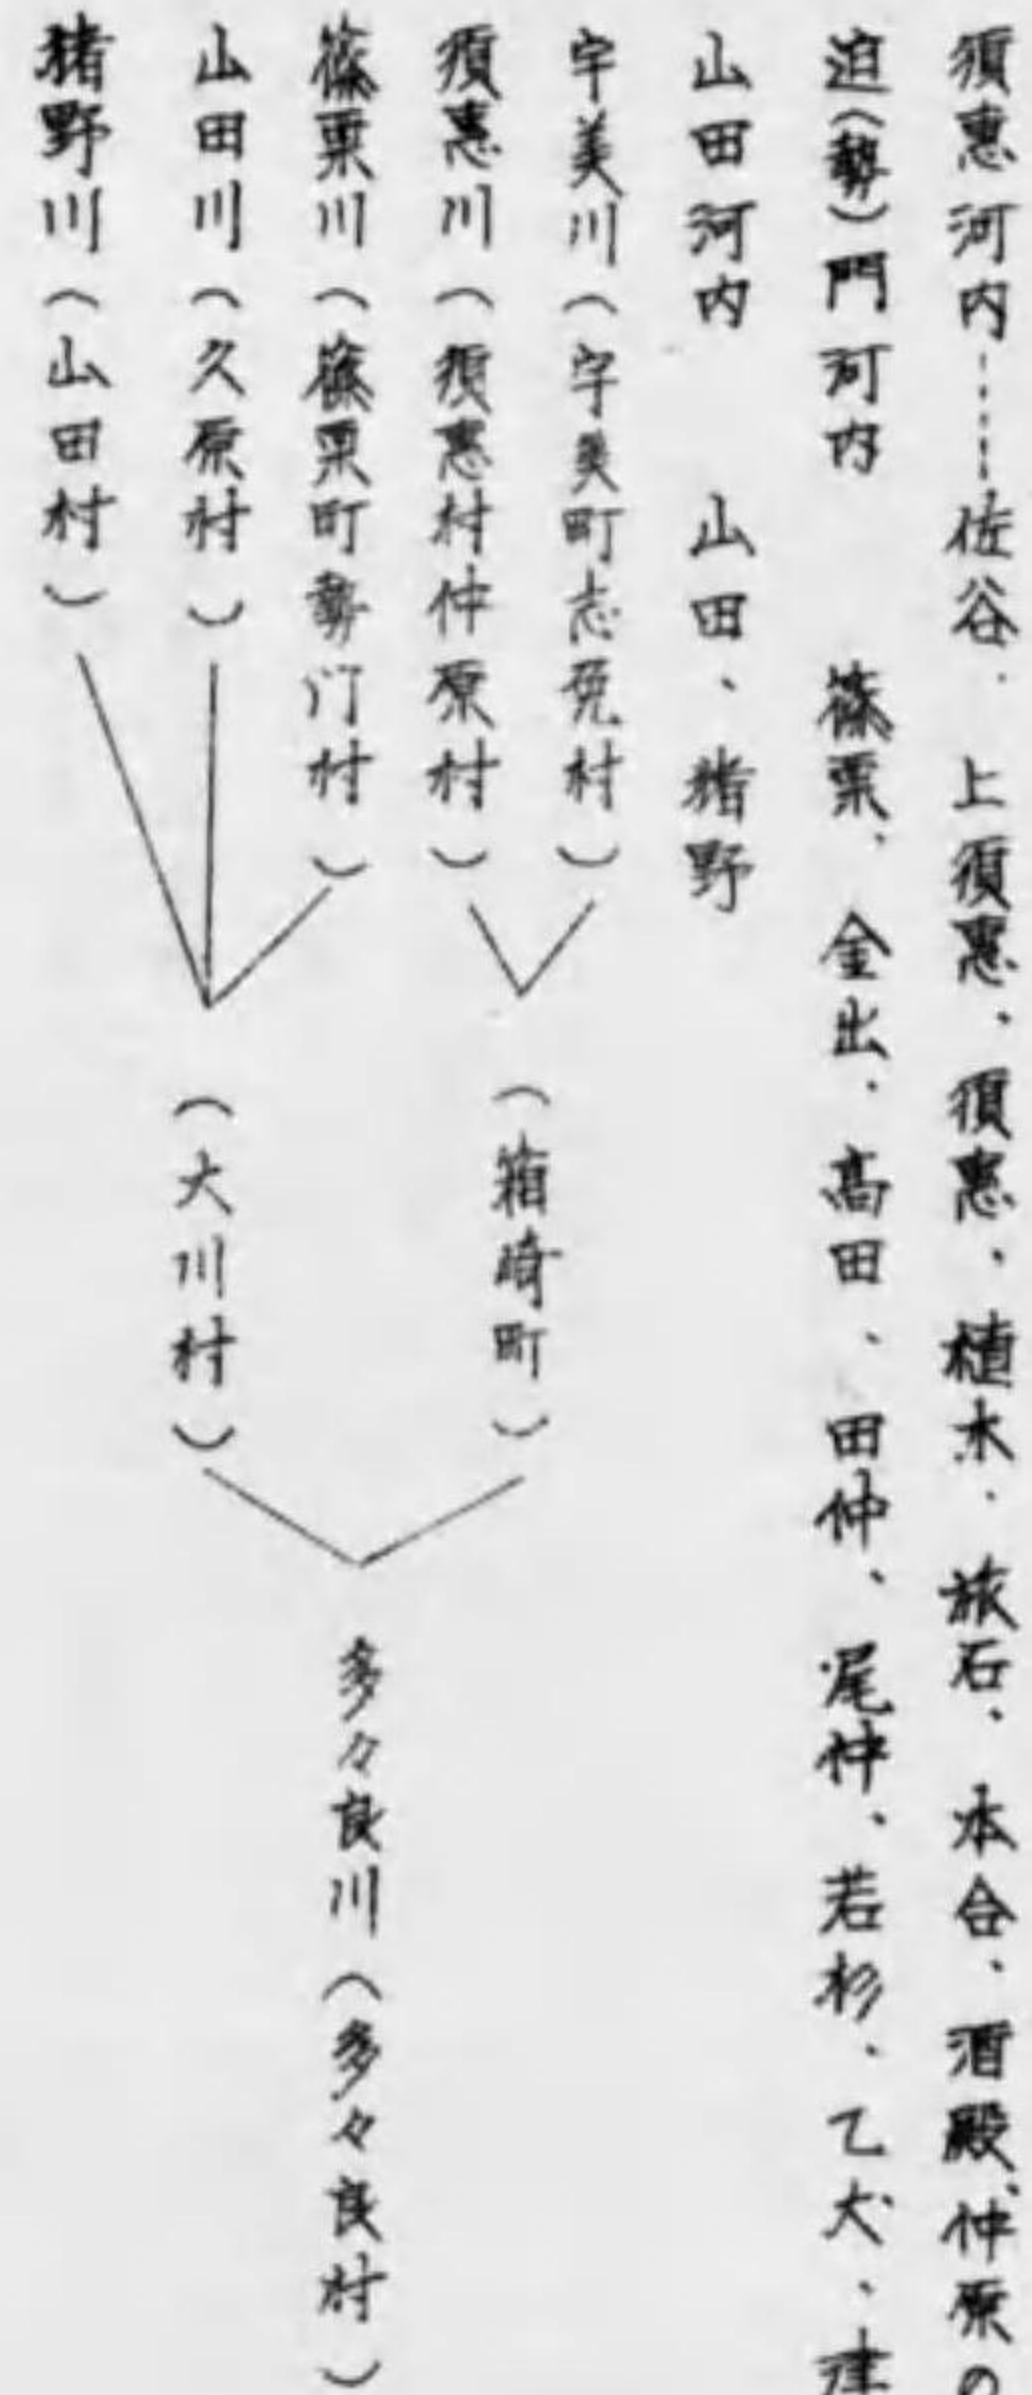 須恵河内……佐谷、上須惠、須惠、植木、旅石、本合、酒殿、仲原の
迫(勢)門河内 篠栗、金出、高田、田仲、尾仲、若杉、乙犬、津
山田河内 山田、猪野
宇美川(宇美町志免村)
須惠川(須惠村仲原村)
篠栗川(篠栗町勢门村)
山田川(久原村)
猪野川(山田村)
(箱崎町)
(大川村)
多々良川(多々良村)